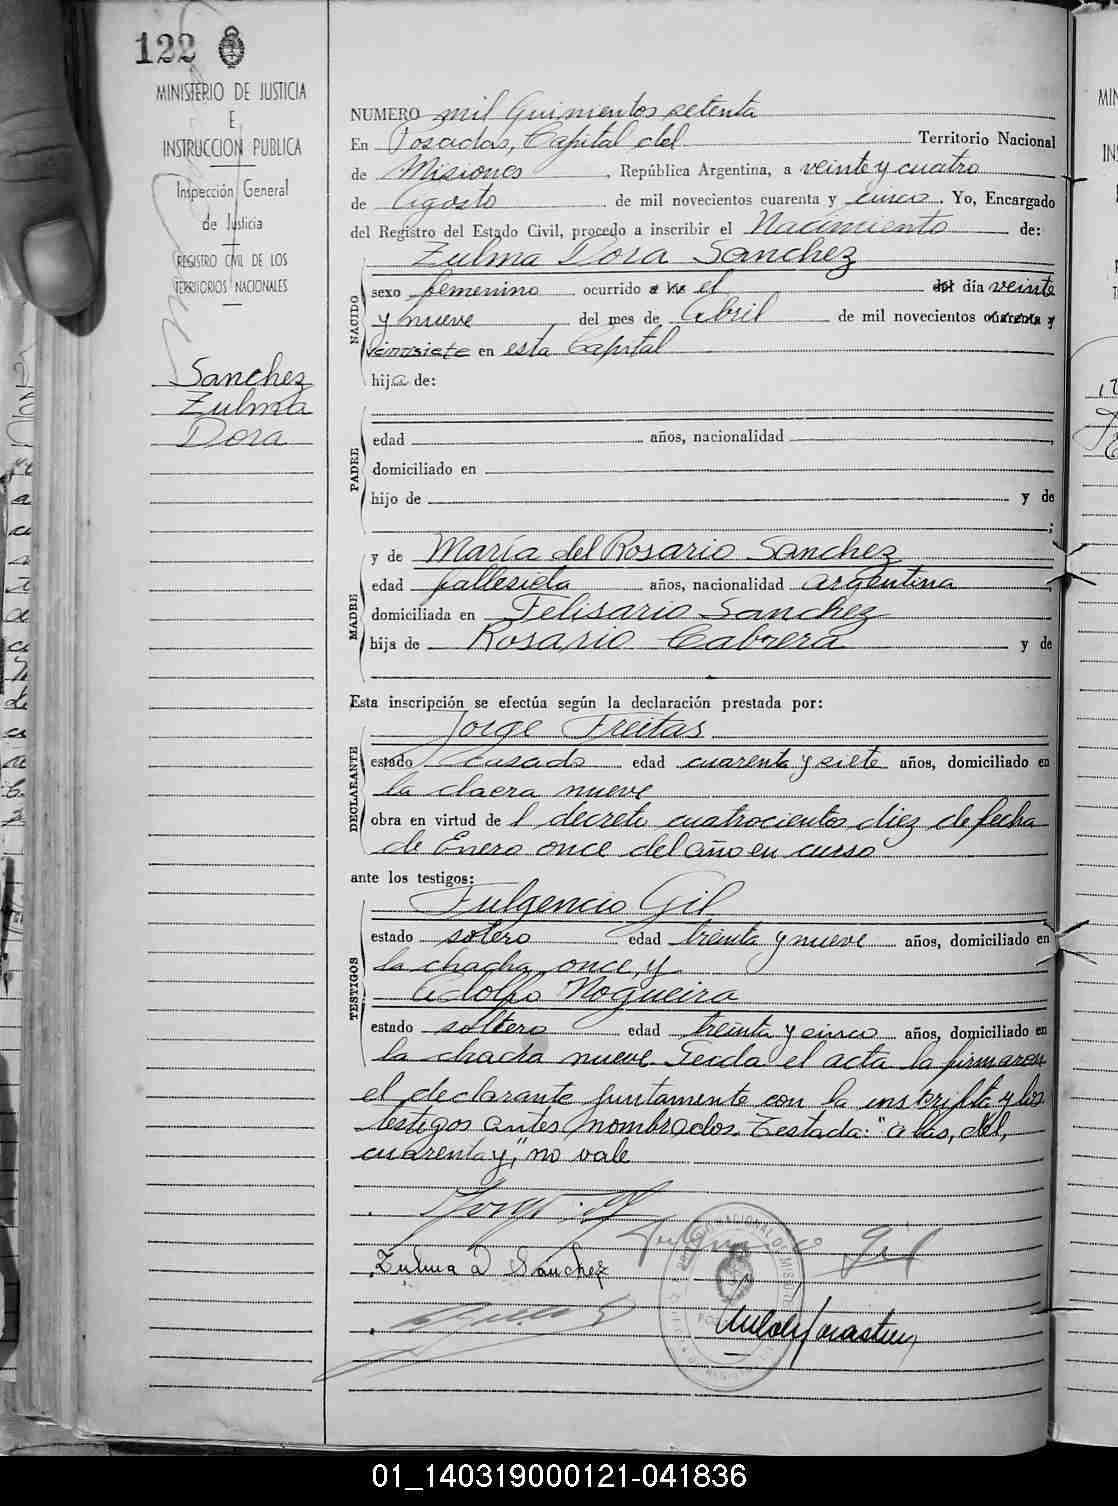 122
MINISTERIO DE JUSTICIA
E
INSTRUCCION PUBLICA
Inspección General
de Justicia
REGISTRO CIVIL DE LOS
TERRITORIOS NACIONALES
Sanchez
Zulma
Dora
NUMERO mil Quinientos setenta
En Posadas, Capital del Territorio Nacional
de Misiones, República Argentina, a veinte y cuatro
de Agosto de mil novecientos cuarenta y cinco. Yo, Encargado
del Registro del Estado Civil, procedo a inscribir el Nacimiento de:
Zulma Dora Sanchez
NACIDO
sexo femenino ocurrido a las el del día veinte
y nueve del mes de Abril de mil novecientos cuarenta y
veintisiete en esta Capital
hija de:
PADRE
edad años, nacionalidad
domiciliado en
hijo de y de
;
MADRE
y de María del Rosario Sanchez
edad fallesida años, nacionalidad argentina
domiciliada en Felisario Sanchez
hija de Rosario Cabrera y de
Esta inscripción se efectúa según la declaración prestada por:
DECLARANTE
Jorge Freitas
estado casado edad cuarenta y siete años, domiciliado en
la chacra nueve
obra en virtud de l decreto cuatrocientos diez de fecha
de Enero once del año en curso
ante los testigos:
TESTIGOS
Fulgencio Gil
estado soltero edad treinta y nueve años, domiciliado en
la chacha once, y
Adolfo Nogueira
estado soltero edad treinta y cinco años, domiciliado en
la chacra nueve. Leida el acta la firmaron
el declarante juntamente con la inscripta y los
testigos antes nombrados. Testada: "a las, del,
cuarenta y," no vale
Gil
Zulma D Sanchez
01_140319000121-041836